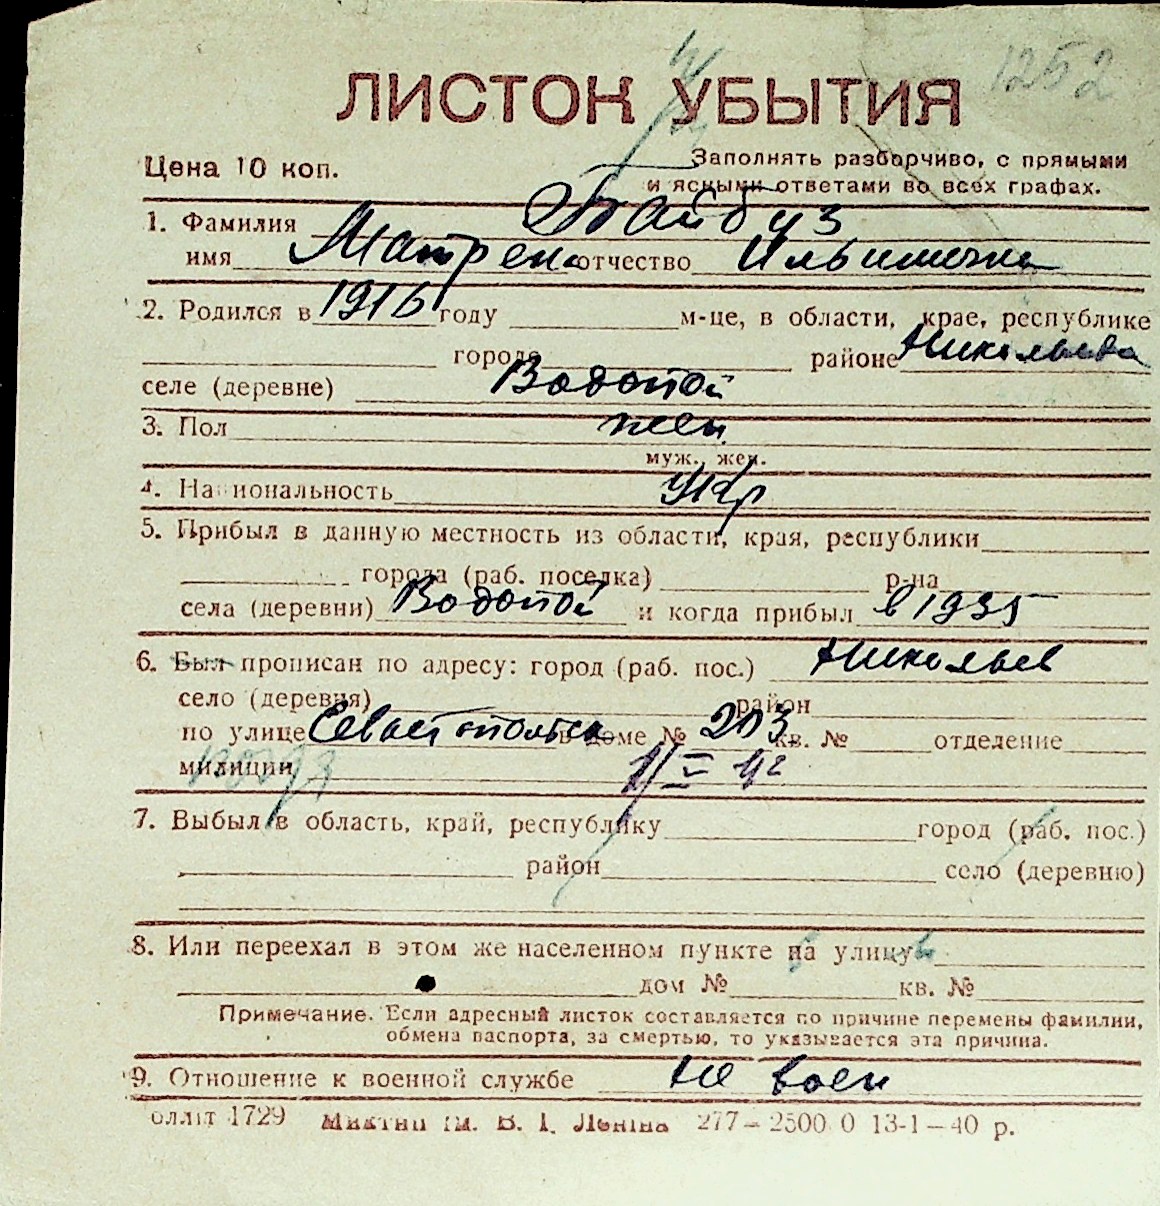 1252
ЛИСТОК УБЫТИЯ
Цена 10 коп.
Заполнять разборчиво, с прямыми
и ясными ответами во всех графах.
1. Фамилия Байбуз
имя Матрена отчество Ильинична
2. Родился в 1916 году м-це, в области, крае, республике
городе районе Николаева
селе (деревне) Водопой
3. Пол жен
муж., жен.
4. Национальность Укр
5. Прибыл в данную местность из области, края, республики
города (раб. поселка) р-на
села (деревни) Водопой и когда прибыл в 1935
6. Был прописан по адресу: город (раб. пос.) Николаев
село (деревня) район
по улице Севастопольск в доме № 203 кв. № отделение
милиции 1/V 42
7. Выбыл в область, край, республику город (раб. пос.)
район село (деревню)
8. Или переехал в этом же населенном пункте на улицу
дом № кв. №
Примечание. Если адресный листок составляется по причине перемены фамилии,
обмена паспорта, за смертью, то указывается эта причина.
9. Отношение к военной службе не воен
оллит 1729 ім. В. І. Леніна 277–2500.0 13-1–40 р.